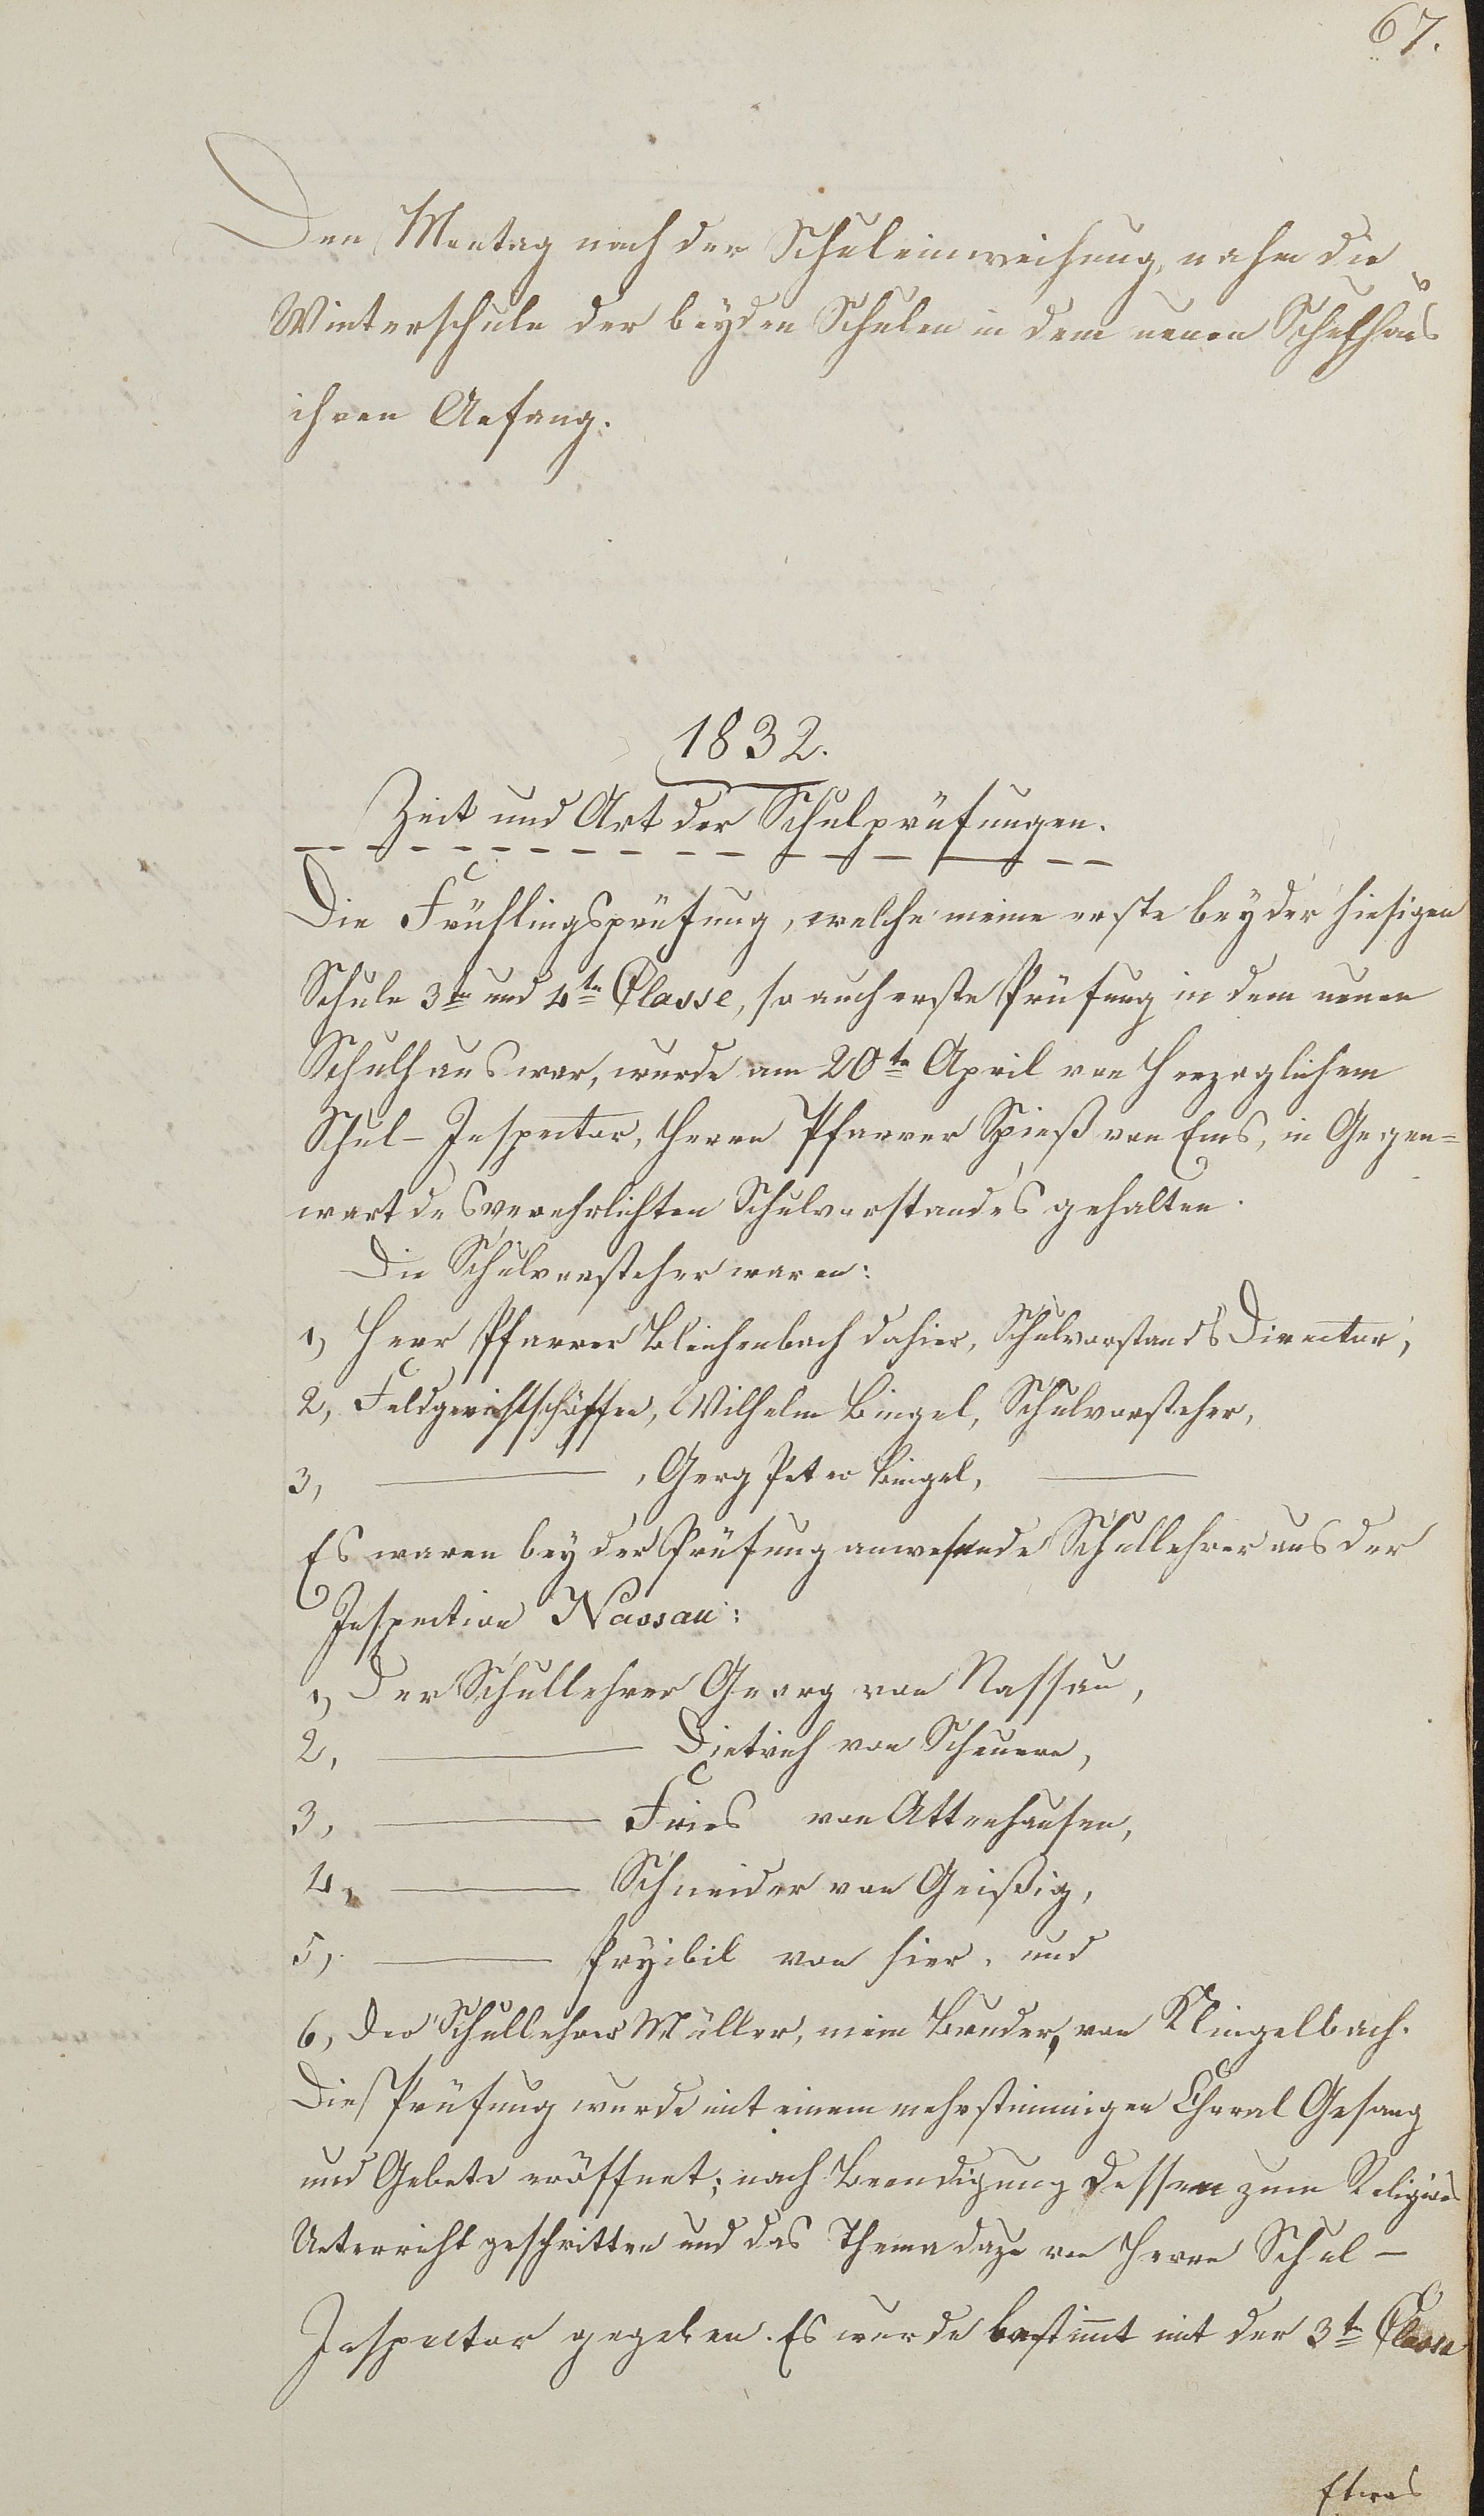 67.
Den Montag nach der Schuleinweihung, nahm die
Winterschule der beyden Schulen in dem neuen Schulhaus
ihren Anfang.
1832.
Zeit und Art der Schulprüfungen.
Die Frühlingsprüfung, welche meine erste bey der hiesigen
Schule 3te und 4te Classe, so auch erste Prüfung in dem neuen
Schulhaus war, wurde am 20te April von Herzoglichem
Schul-Inspector, Herrn Pfarrer Spieß von Ems, in Gegen=
wart des verehrlichten Schulvorstandes gehalten.
Die Schulvorsteher waren:
1, Herr Pfarrer Bleichenbach dahier, Schulvorstands Director,
2, Feldgerichtschöffen, Wilhelm Bingel, Schulvorsteher,
3, ——— , Gerg Peter Bingel, ———
Es waren bey der Prüfung anwesende Schullehrer aus der
Inspection Nassau:
1, Der Schullehrer Georg von Nassau,
2, ——— Dietrich von Scheuern,
3, ——— Fries von Attenhausen,
4, ——— Schneider von Geißig,
5, ——— Pryibil von hier, und
6, der Schullehrer Müller, mein Bruder, von Klingelbach.
Die Prüfung wurde mit einem mehrstimmigen Choral Gesang
und Gebete eröffnet; nach Beendigung dessen zum Religions
Unterricht geschritten und das Thema dazu von Herrn Schul-
Inspector gegeben. Es wurde bestimmt mit der 3te Classe
Etwas